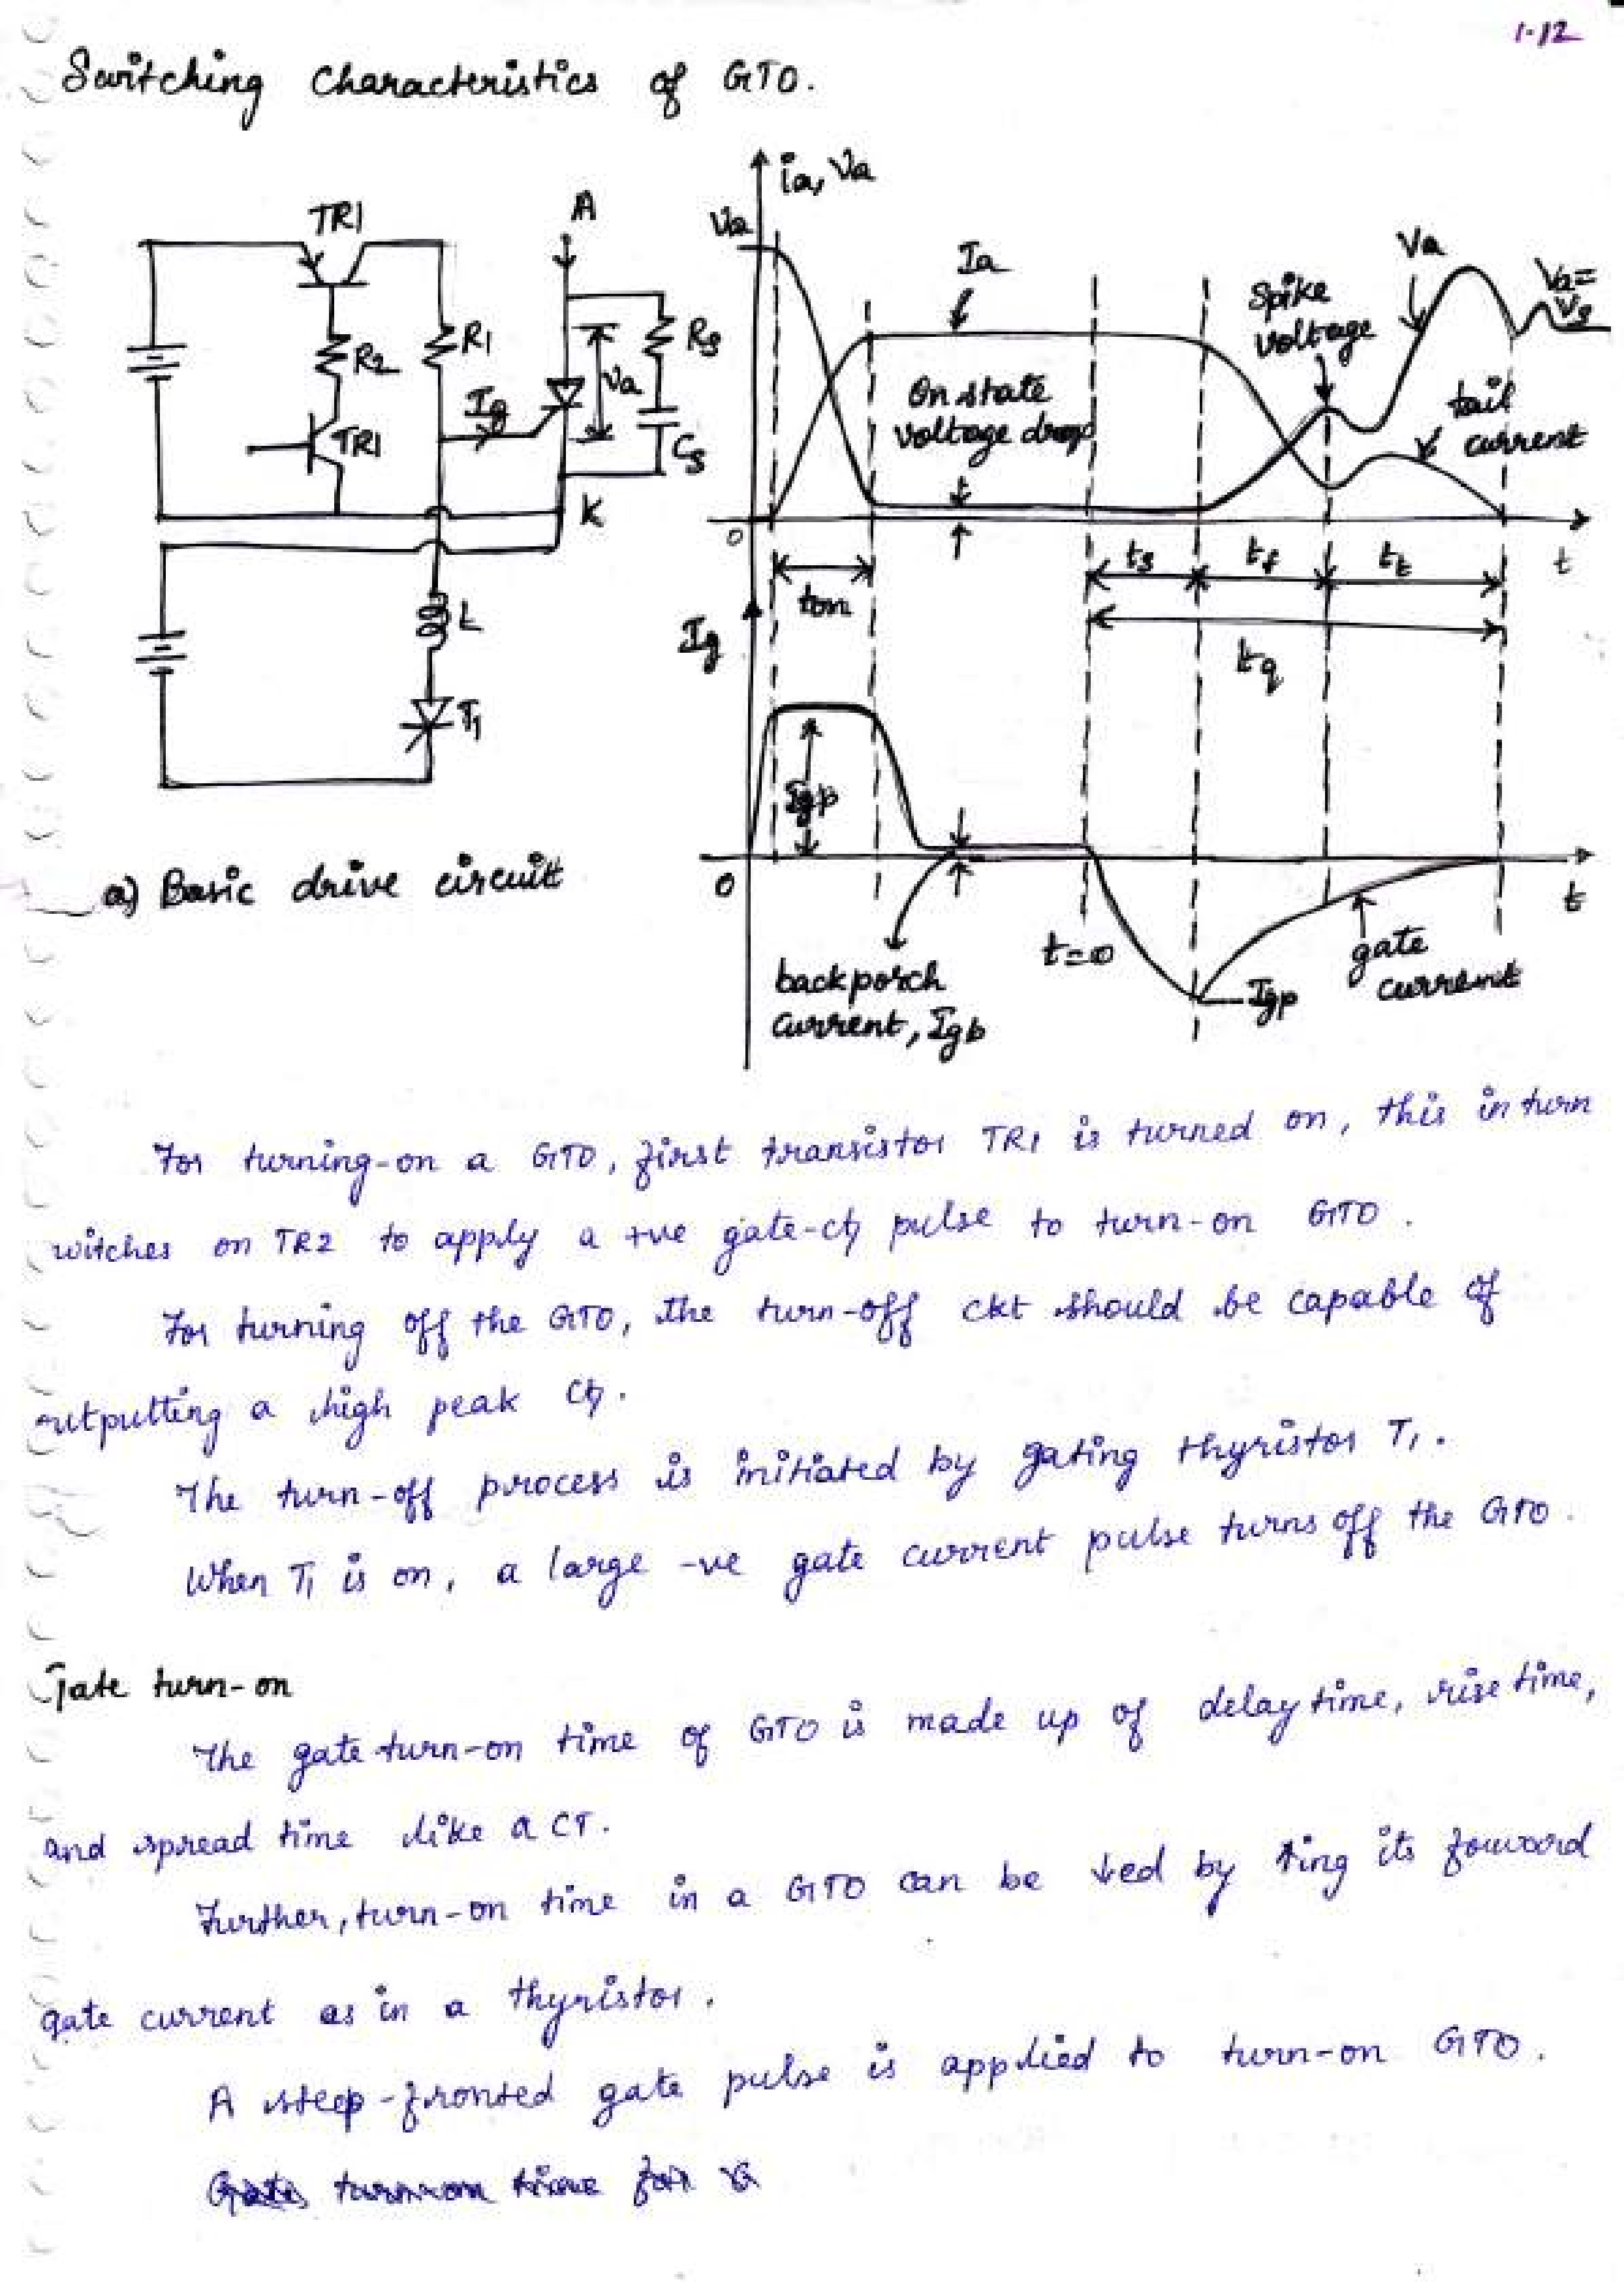 1.12
Switching Characteristics of GTO.
TR1
R2
R1
TR1
Ig
A
Va
Rs
Cs
K
L
T1
a) Basic drive circuit
ia, Va
Va
Ia
On state
voltage drop
Spike
voltage
Va
Va=
Vs
tail
current
0
ton
ts
tf
tt
t
tq
Ig
Igp
0
t
t=0
backporch
current, Igb
Igp
gate
current
For turning-on a GTO, first transistor TR1 is turned on, this inturn
witches on TR2 to apply a +ve gate- pulse to turn-on GTO.
For turning off the GTO, the turn-off ckt should be capable of
utputting a high peak
The turn-off process is initiated by gating thyristor T1.
When T1 is on, a large -ve gate current pulse turns off the GTO.
Gate turn-on
The gate turn-on time of GTO is made up of delay time, rise time,
and spread time like a CT.
Further, turn-on time in a GTO can be ↓ed by ↑ing its forward
gate current as in a thyristor.
A steep-fronted gate pulse is applied to turn-on GTO.